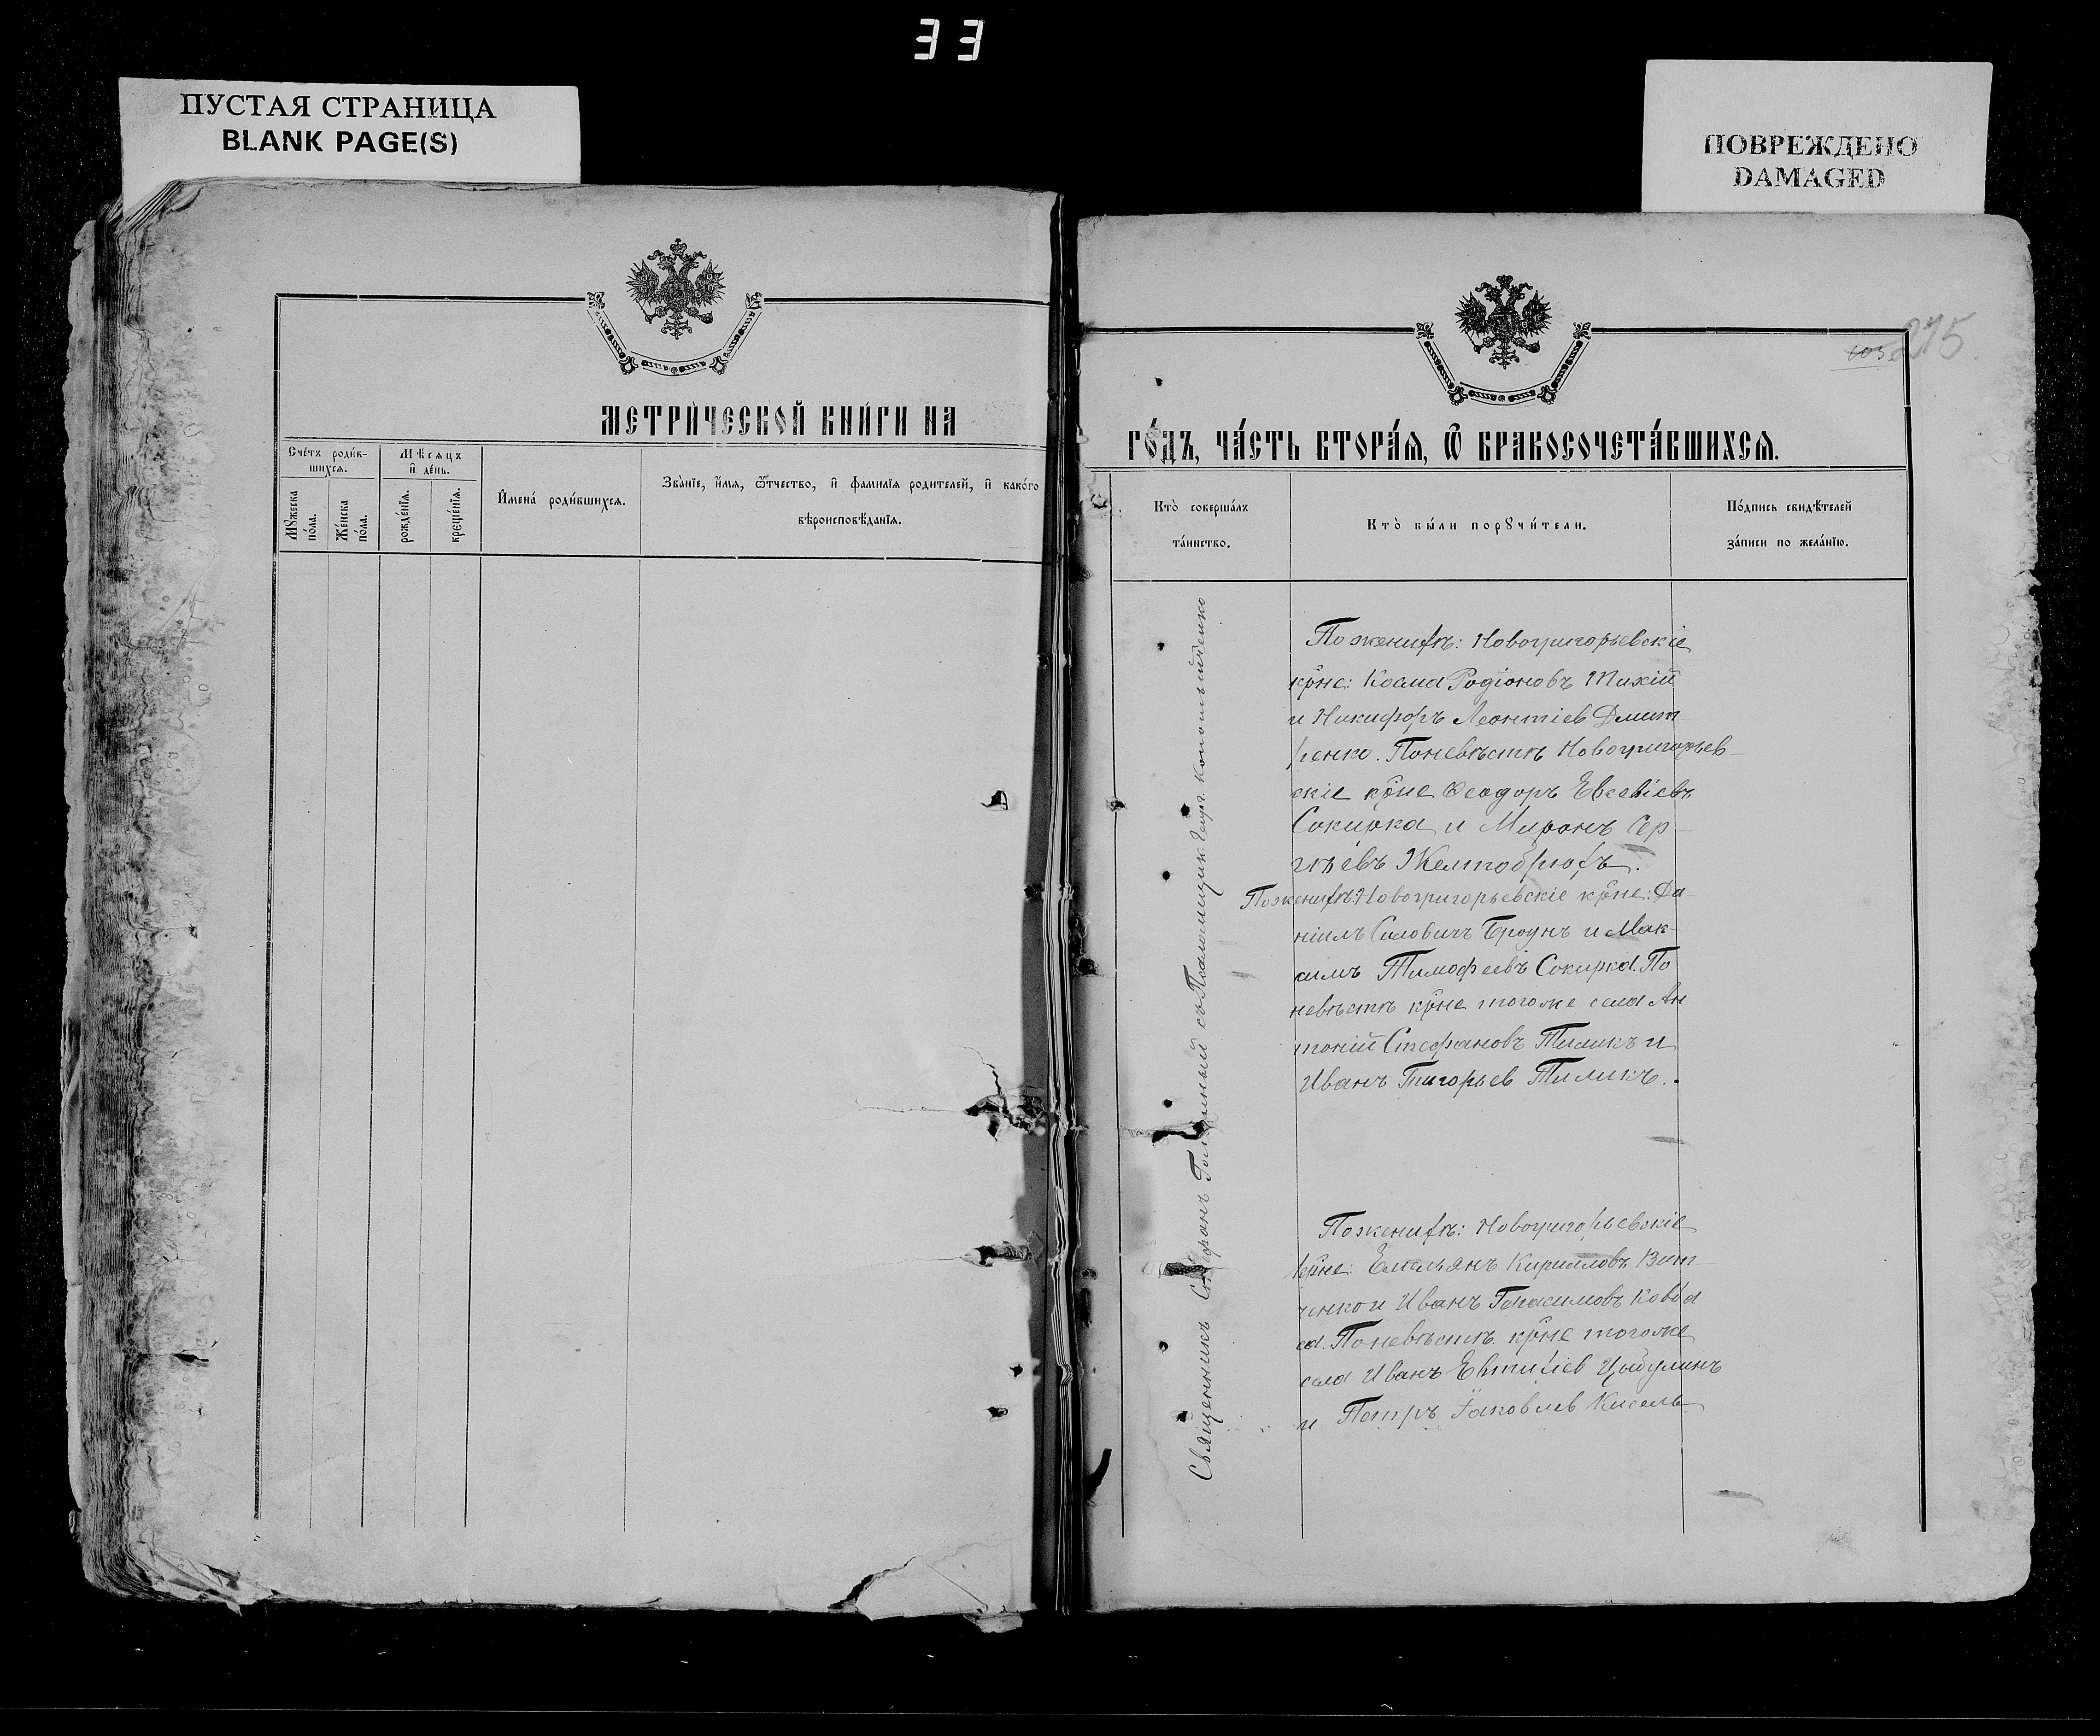 33
ПУСТАЯ СТРАНИЦА
BLANK PAGE(S)
ПОВРЕЖДЕНО
DAMAGED
МЕТРИ́ЧЕСКОЙ КНИ́ГИ НА
Сче́тъ роди́в-
шихсѧ.
Мѣсѧцъ
и҆ де́нь.
Мꙋжеска
по́ла.
Же́нска
по́ла.
рожде́нїѧ.
креще́нїѧ.
И҆мена́ роди́вшихсѧ.
Зва́нїе, и҆́мѧ, ѻ҆́тчество, и҆ фамилїѧ родителей, и҆ како́го
вѣроисповѣ́данїѧ.
275
103
ГО́ДЪ, ЧА́СТЬ ВТОРА́Ѧ, Ѿ БРАКОСОЧЕТА́ВШИХСѦ.
Кто̀ соверша́лъ
та́инство.
Кто̀ бы́ли порꙋчи́тели.
По́дпись свидѣ́телей
за́писи по жела́нїю.
Священникъ Стефанъ съ Псаломщик. Георг. Копольийченко
По женихѣ: Новогригорьевскіе
крне: Косма Родіоновъ Тихій
и Никифоръ Леонтіев Дмит
ренко. По невѣстѣ Новогригорьев-
скіе крне Ѳеодоръ Евсевіевъ
Сокирка и Миронъ Сер-
гѣевъ Желтобрюхъ.
По женихѣ: Новогригорьевскіе крне: Да-
ніилъ Силовичъ Броунъ и Мак-
симъ Тимофеевъ Сокирка. По
невѣстѣ крне тогоже села Ан
тоній Стефановъ Тиликъ и
Иванъ Григорьев Тиликъ.
По женихѣ: Новогригорьевскіе
крне: Емельянъ Кирилловъ Вит-
ченко и Иванъ Герасимовъ Ковба
са. По невѣстѣ крне тогоже
села Иванъ Евтихіев Цыбулинъ
и Петръ Іаковлев Кисель